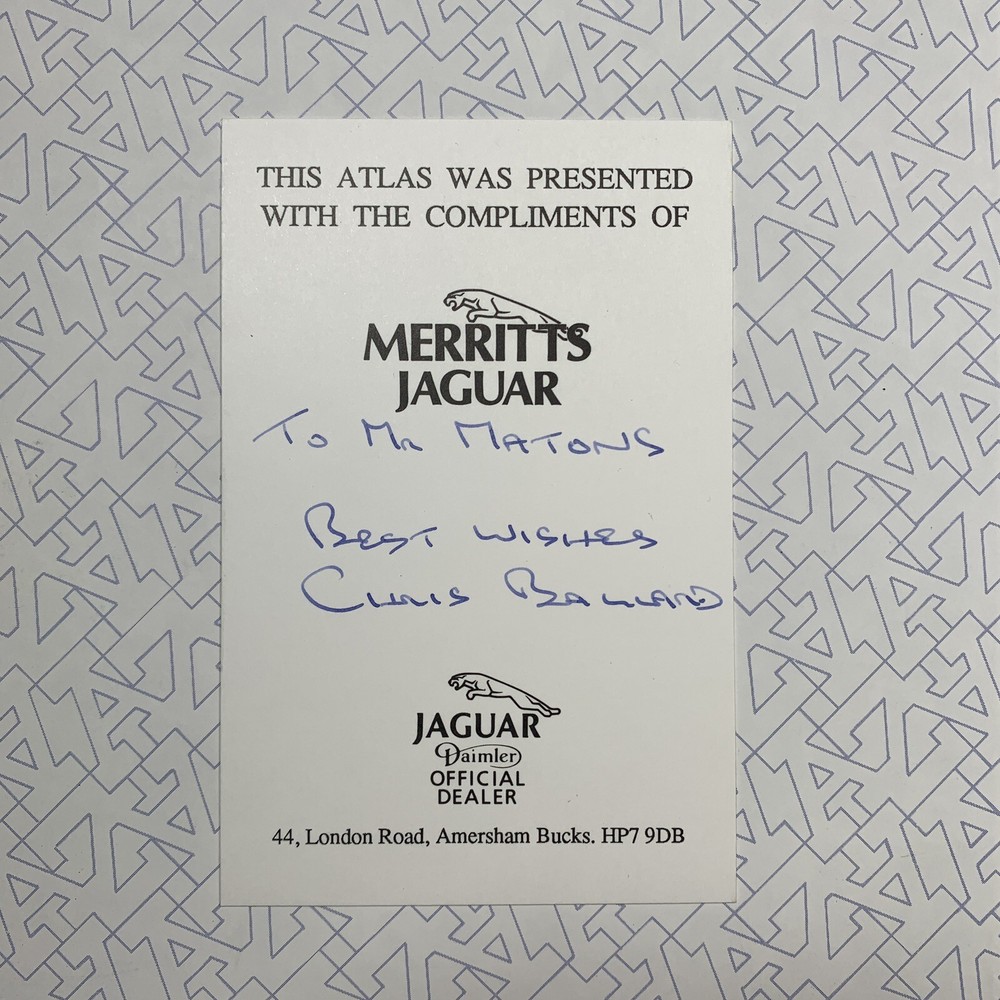 THIS ATLAS WAS PRESENTED
WITH THE COMPLIMENTS OF
MERRITTS
JAGUAR
To Mr MATONS
BEST WISHES
CHRIS BALLARD
JAGUAR
Daimler
OFFICIAL
DEALER
44, London Road, Amersham Bucks. HP7 9DB